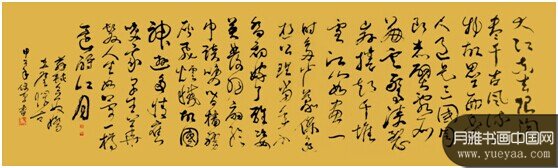 大江东去浪淘
尽千古风流人
物故垒西边
人道是三国周
郎赤壁乱石
崩云惊涛裂
岸卷起千堆
雪江山如画一
时多少豪杰遥
想公瑾当年小
乔初嫁了雄姿
英发羽扇纶
巾谈笑间樯橹
灰飞烟灭故国
神游多情应
笑我早生华
发人生如梦一樽
还酹江月
月雅书画中国网
www.yueyaa.com